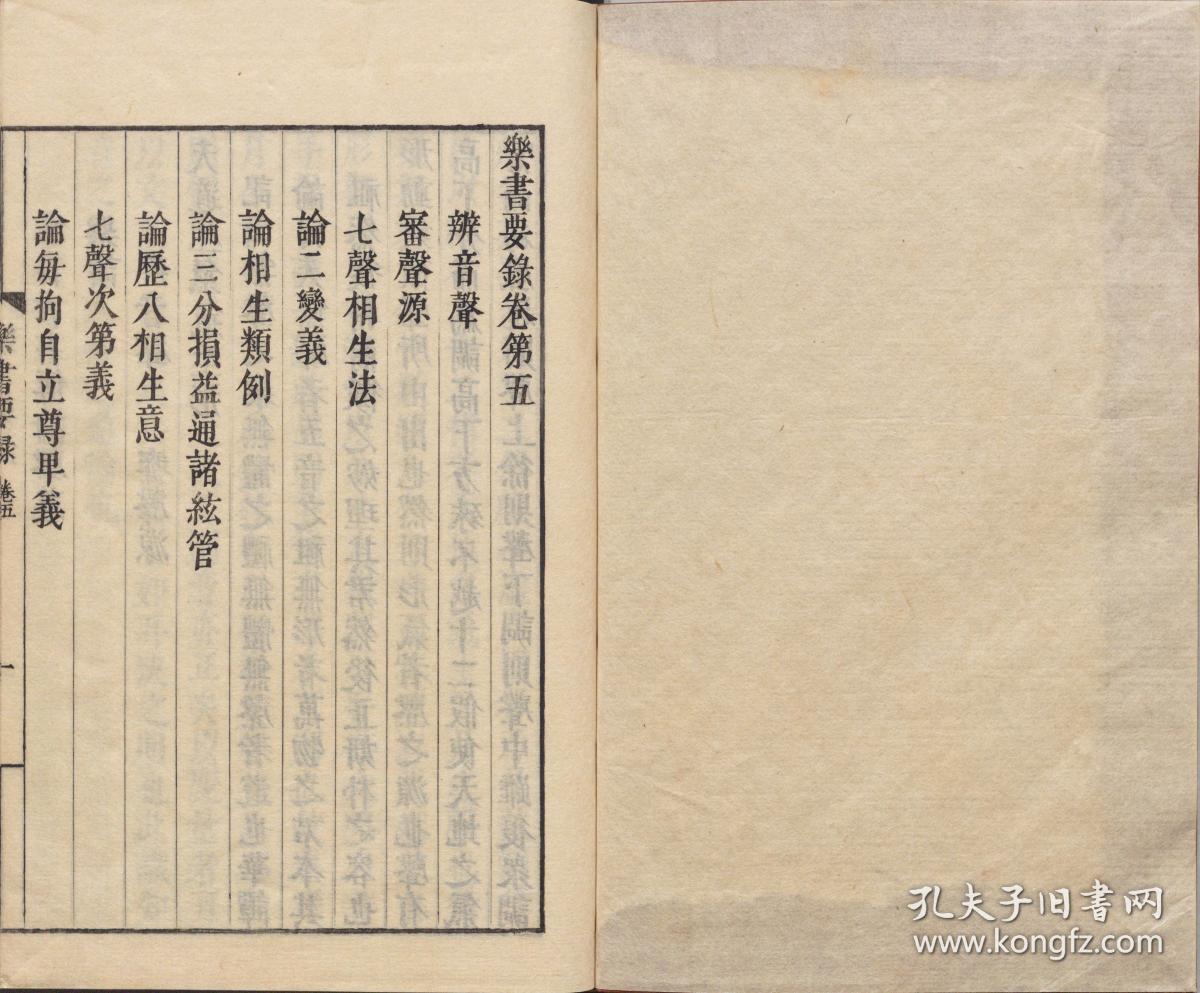 樂書要錄卷第五
辨音聲
審聲源
七聲相生法
論二變義
論相生類例
論三分損益通諸絃管
論歷八相生意
七聲次第義
論每均自立尊卑義
樂書要錄 卷五
一
孔夫子旧书网
www.kongfz.com